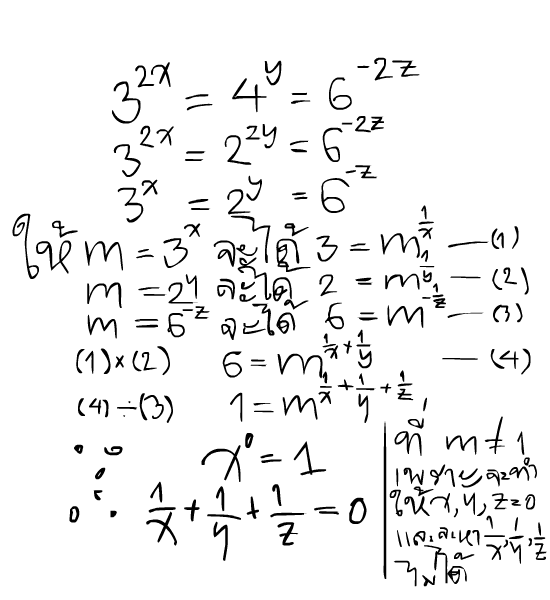 3^{2x} = 4^y = 6^{-2z}
3^{2x} = 2^{2y} = 6^{-2z}
3^x = 2^y = 6^{-z}
ให้ m = 3^x จะได้ 3 = m^{1/x} —(1)
m = 2^y จะได้ 2 = m^{1/y} —(2)
m = 6^{-z} จะได้ 6 = m^{-1/z} —(3)
(1)×(2) 6 = m^{1/x + 1/y} —(4)
(4)÷(3) 1 = m^{1/x + 1/y + 1/z}
∵ x^0 = 1
∴ 1/x + 1/y + 1/z = 0
ที่ m ≠ 1
เพราะจะทำ
ให้ x, y, z = 0
และจะหา 1/x, 1/y, 1/z
ไม่ได้